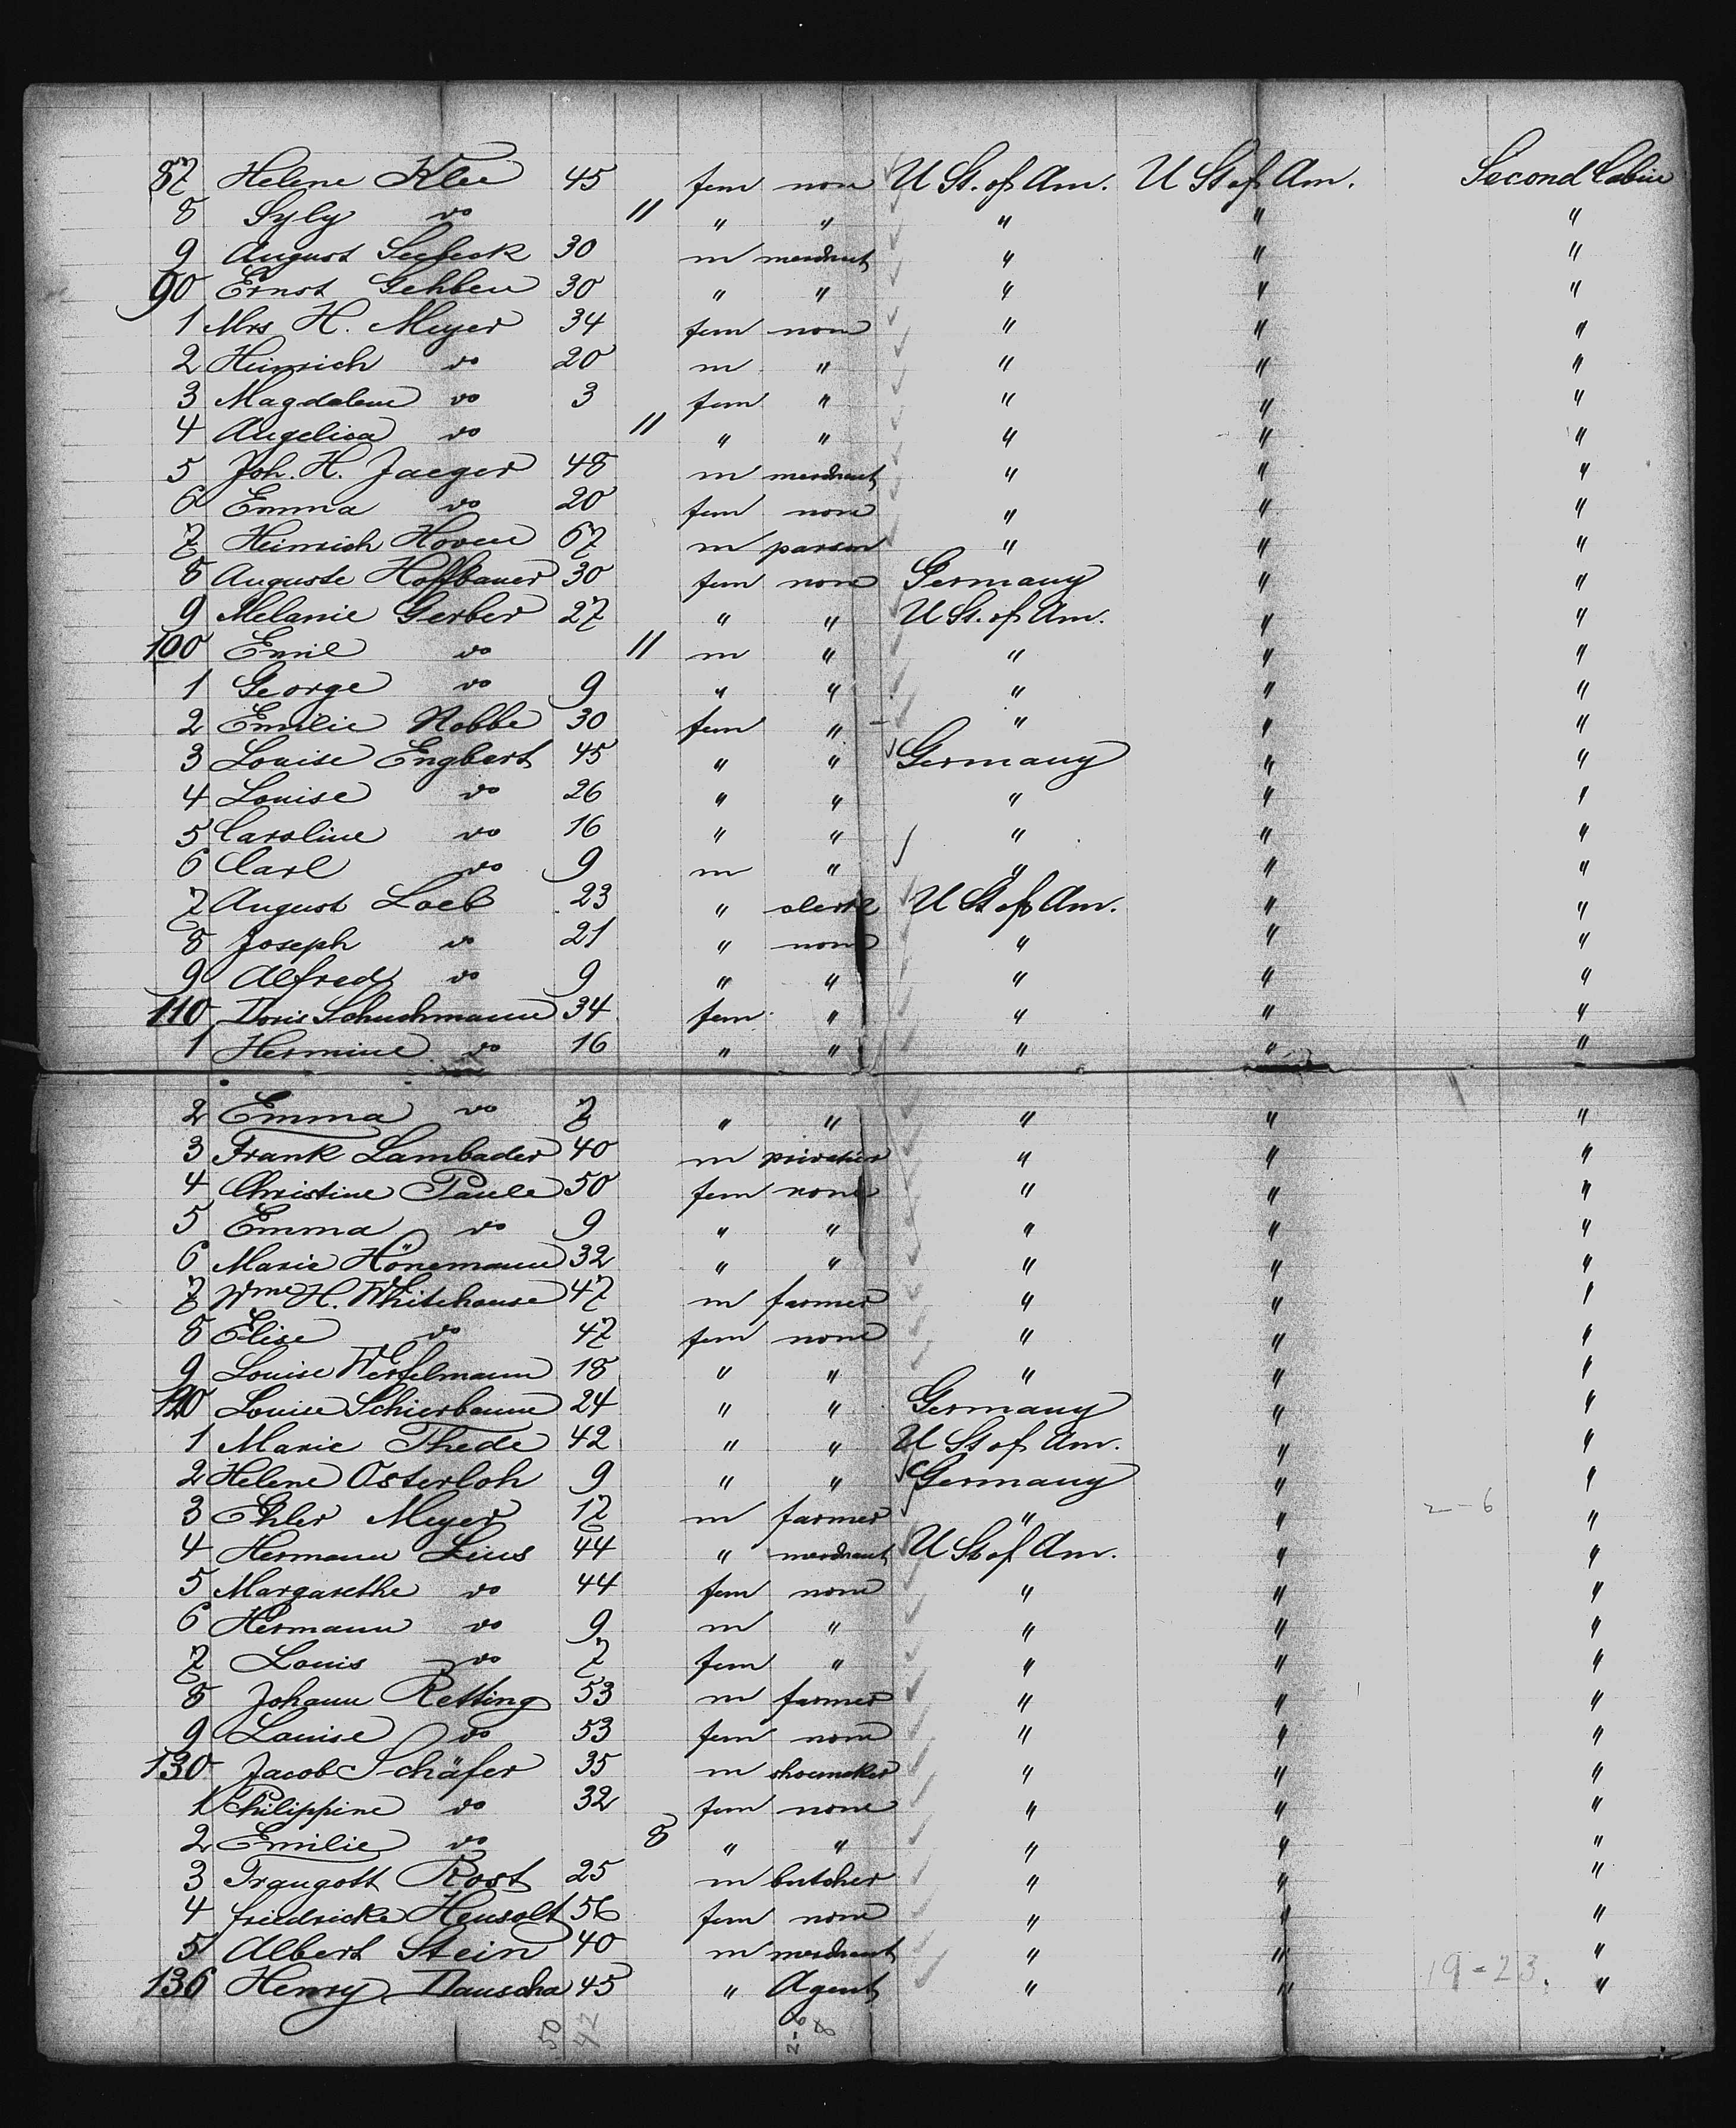 87 Helene Klee 45 fem none U St. of Am. U St of Am. Second Cabin
8 Syly do 11 " " " " "
9 August Seebeck 30 m merchant " " "
90 Ernst Gehben 30 " " " " "
1 Mrs H. Meyer 34 fem none " " "
2 Heinrich do 20 m " " " "
3 Magdalene do 3 fem " " " "
4 Angelica do 11 " " " " "
5 Joh. H. Jaeger 48 m merchant " " "
6 Emma do 20 fem none " " "
7 Heinrich Hoven 67 m parson " " "
8 Auguste Hoffbauer 30 fem none Germany " "
9 Melanie Gerber 27 " " U St. of Am. " "
100 Emil do 11 m " " " "
1 George do 9 " " " " "
2 Emilie Nobbe 30 fem " " " "
3 Louise Engbert 45 " " Germany " "
4 Louise do 26 " " " " "
5 Caroline do 16 " " " " "
6 Carl do 9 m " " " "
7 August Loeb 23 " clerk U St of Am. " "
8 Joseph do 21 " none " " "
9 Alfred do 9 " " " " "
110 Doris Schuchmann 34 fem " " " "
1 Hermine do 16 " " " " "
2 Emma do 7 " " " " "
3 Frank Lambader 40 m privatier " " "
4 Christine Paule 50 fem none " " "
5 Emma do 9 " " " " "
6 Marie Hönemann 32 " " " " "
7 Wme H. Whitehouse 47 m farmer " " "
8 Elise do 47 fem none " " "
9 Louise Wesselmann 18 " " " " "
120 Louise Schierbaum 24 " " Germany " "
1 Marie Thede 42 " " U St of Am. " "
2 Helene Osterloh 9 " " Germany " "
3 Ehler Meyer 17 m farmer " " 2-6 "
4 Hermann Lius 44 " merchant U St of Am. " "
5 Margarethe do 44 fem none " " "
6 Hermann do 9 m " " " "
7 Louis do 7 fem " " " "
8 Johann Retting 53 m farmer " " "
9 Louise do 53 fem none " " "
130 Jacob Schäfer 35 m shoemaker " " "
1 Philippine do 32 fem none " " "
2 Emilie do 8 " " " " "
3 Traugott Rost 25 m butcher " " "
4 friedricke Heusolt 56 fem none " " "
5 Albert Stein 40 m merchant " " "
136 Henry Dauscha 45 " Agent " " 19-23. "
50 42 2-6 8